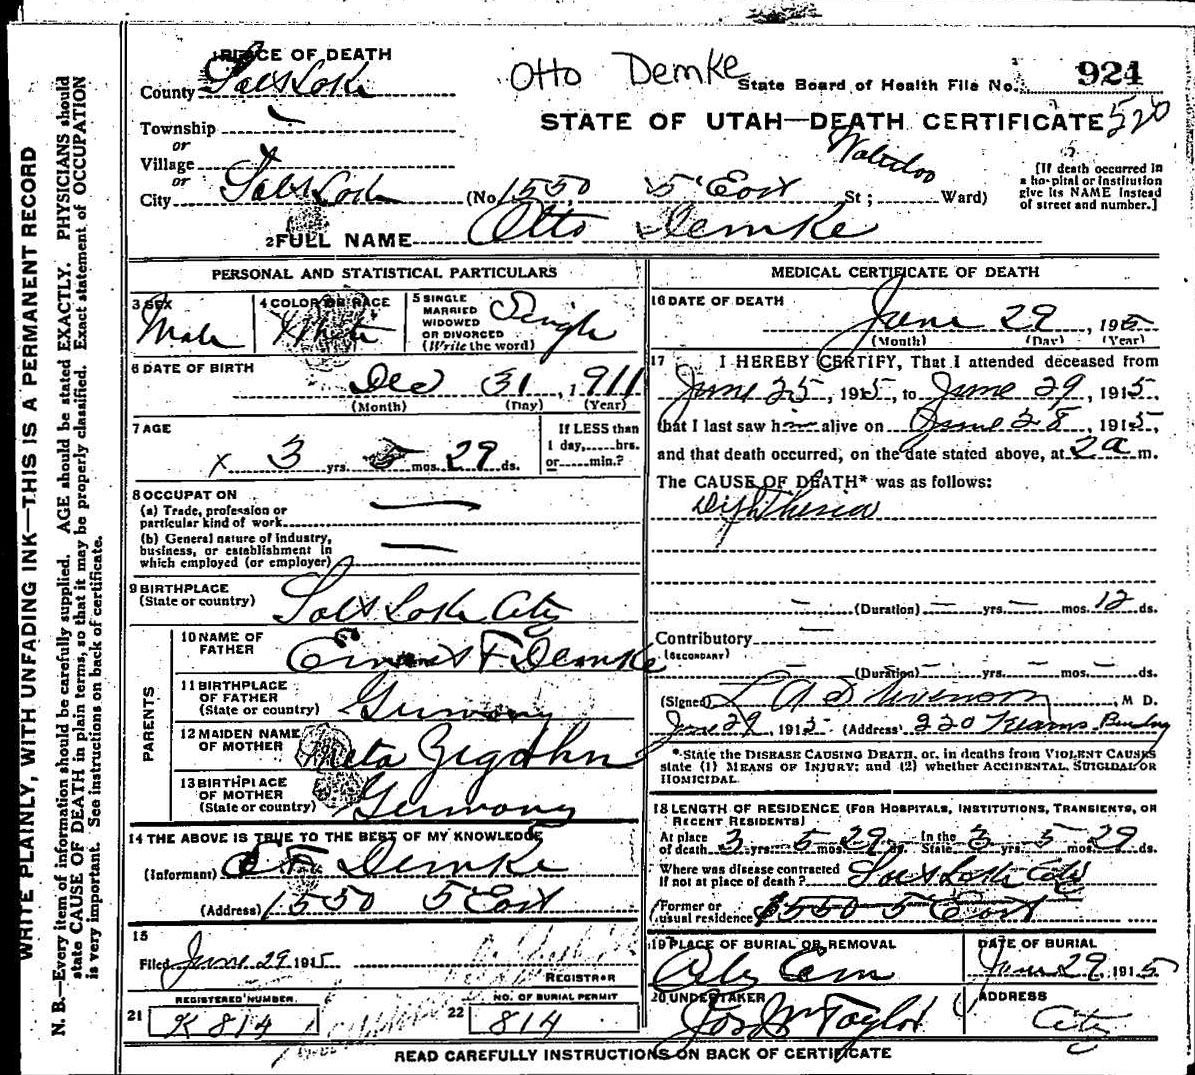 WRITE PLAINLY, WITH UNFADING INK—THIS IS A PERMANENT RECORD
N. B.—Every item of information should be carefully supplied. AGE should be stated EXACTLY. PHYSICIANS should
state CAUSE OF DEATH in plain terms, so that it may be properly classified. Exact statement of OCCUPATION
is very important. See instructions on back of certificate.
1 PLACE OF DEATH
Otto Demke
State Board of Health File No. 924
County Salt Lake
STATE OF UTAH—DEATH CERTIFICATE 520
Township
or
Village
Waterloo
or
City Salt Lake (No. 1550 5 East St; Ward)
[If death occurred in
a hospital or institution
give its NAME instead
of street and number.]
2 FULL NAME Otto Demke
PERSONAL AND STATISTICAL PARTICULARS
3 SEX
Male
4 COLOR OR RACE
White
5 SINGLE
MARRIED
WIDOWED
OR DIVORCED
(Write the word)
Single
6 DATE OF BIRTH
Dec 31, 1911
(Month) (Day) (Year)
7 AGE
3 yrs. 5 mos. 29 ds.
If LESS than
1 day, hrs.
or min.?
8 OCCUPATON
(a) Trade, profession or
particular kind of work
(b) General nature of industry,
business, or establishment in
which employed (or employer)
9 BIRTHPLACE
(State or country) Salt Lake City
PARENTS
10 NAME OF
FATHER Ernest F Demke
11 BIRTHPLACE
OF FATHER
(State or country) Germany
12 MAIDEN NAME
OF MOTHER Meta Zigahn
13 BIRTHPLACE
OF MOTHER
(State or country) Germany
14 THE ABOVE IS TRUE TO THE BEST OF MY KNOWLEDGE
(Informant) E F Demke
(Address) 1550 5 East
15
Filed June 29 1915
REGISTRAR
REGISTERED NUMBER.
21 K 814
NO. OF BURIAL PERMIT
22 814
MEDICAL CERTIFICATE OF DEATH
16 DATE OF DEATH
June 29, 1915
(Month) (Day) (Year)
17 I HEREBY CERTIFY, That I attended deceased from
June 25, 1915, to June 29, 1915.
that I last saw him alive on June 28, 1915,
and that death occurred, on the date stated above, at 2 a m.
The CAUSE OF DEATH* was as follows:
Diphtheria
(Duration) yrs. mos. 12 ds.
Contributory
(SECONDARY)
(Duration) yrs. mos. ds.
(Signed) L A Stevenson, M D.
June 29, 1915 (Address) 220 Kearns Building
*State the DISEASE CAUSING DEATH, or, in deaths from VIOLENT CAUSES
state (1) MEANS OF INJURY; and (2) whether ACCIDENTAL, SUICIDAL OR
HOMICIDAL.
18 LENGTH OF RESIDENCE (FOR HOSPITALS, INSTITUTIONS, TRANSIENTS, OR
RECENT RESIDENTS)
At place
of death 3 yrs. 5 mos. 29 ds. In the
State 3 yrs. 5 mos. 29 ds.
Where was disease contracted
If not at place of death? Salt Lake City
Former or
usual residence 1550 5 East
19 PLACE OF BURIAL OR REMOVAL
City Cem
DATE OF BURIAL
June 29, 1915
20 UNDERTAKER
Jos Wm Taylor
ADDRESS
City
READ CAREFULLY INSTRUCTIONS ON BACK OF CERTIFICATE